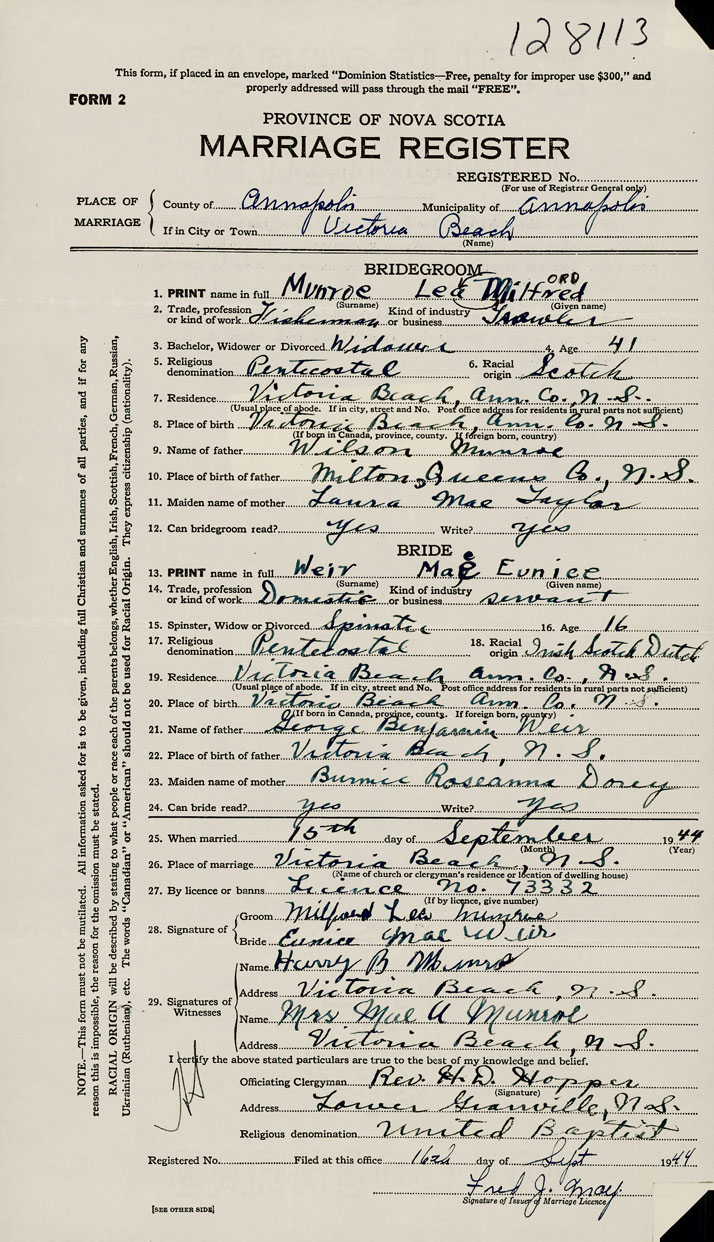 128113
This form, if placed in an envelope, marked "Dominion Statistics—Free, penalty for improper use $300," and
properly addressed will pass through the mail "FREE".
FORM 2
PROVINCE OF NOVA SCOTIA
MARRIAGE REGISTER
REGISTERED No.
(For use of Registrar General only)
PLACE OF MARRIAGE
County of Annapolis Municipality of Annapolis
If in City or Town Victoria Beach
(Name)
BRIDEGROOM
ORD
1. PRINT name in full Munroe Lea Milfred
(Surname) (Given name)
2. Trade, profession or kind of work Fisherman Kind of industry or business Trawler
3. Bachelor, Widower or Divorced Widower 4. Age 41
5. Religious denomination Pentecostal 6. Racial origin Scotch
7. Residence Victoria Beach, Ann. Co., N.S.
(Usual place of abode. If in city, street and No. Post office address for residents in rural parts not sufficient)
8. Place of birth Victoria Beach, Ann. Co. N.S.
(If born in Canada, province, county. If foreign born, country)
9. Name of father Wilson Munroe
10. Place of birth of father Milton, Queens Co., N.S.
11. Maiden name of mother Laura Mae Taylor
12. Can bridegroom read? Yes Write? Yes
BRIDE
13. PRINT name in full Weir Mae Eunice
(Surname) (Given name)
14. Trade, profession or kind of work Domestic Kind of industry or business servant
15. Spinster, Widow or Divorced Spinster 16. Age 16
17. Religious denomination Pentecostal 18. Racial origin Irish Scotch Dutch
19. Residence Victoria Beach Ann. Co., N.S.
(Usual place of abode. If in city, street and No. Post office address for residents in rural parts not sufficient)
20. Place of birth Victoria Beach Ann. Co. N.S.
(If born in Canada, province, county. If foreign born, country)
21. Name of father George Benjamin Weir
22. Place of birth of father Victoria Beach, N.S.
23. Maiden name of mother Burnice Roseanna Dorey
24. Can bride read? Yes Write? Yes
25. When married 15th day of September 1944
(Month) (Year)
26. Place of marriage Victoria Beach, N.S.
(Name of church or clergyman's residence or location of dwelling house)
27. By licence or banns Licence No. 73332
(If by licence, give number)
28. Signature of
Groom Milford Lea Munroe
Bride Eunice Mae Weir
29. Signatures of Witnesses
Name Harry B Munro
Address Victoria Beach, N.S.
Name Mrs Mae A Munroe
Address Victoria Beach, N.S.
I certify the above stated particulars are true to the best of my knowledge and belief.
Officiating Clergyman Rev. H.D. Hopper
(Signature)
Address Lower Granville, N.S.
Religious denomination United Baptist
Registered No. Filed at this office 16th day of Sept 1944
Fred J. May
Signature of Issuer of Marriage Licence
[SEE OTHER SIDE]
NOTE.—This form must not be mutilated. All information asked for is to be given, including full Christian and surnames of all parties, and if for any
reason this is impossible, the reason for the omission must be stated.
RACIAL ORIGIN will be described by stating to what people or race each of the parents belongs, whether English, Irish, Scottish, French, German, Russian,
Ukrainian (Ruthenian), etc. The words "Canadian" or "American" should not be used for Racial Origin. They express citizenship (nationality).